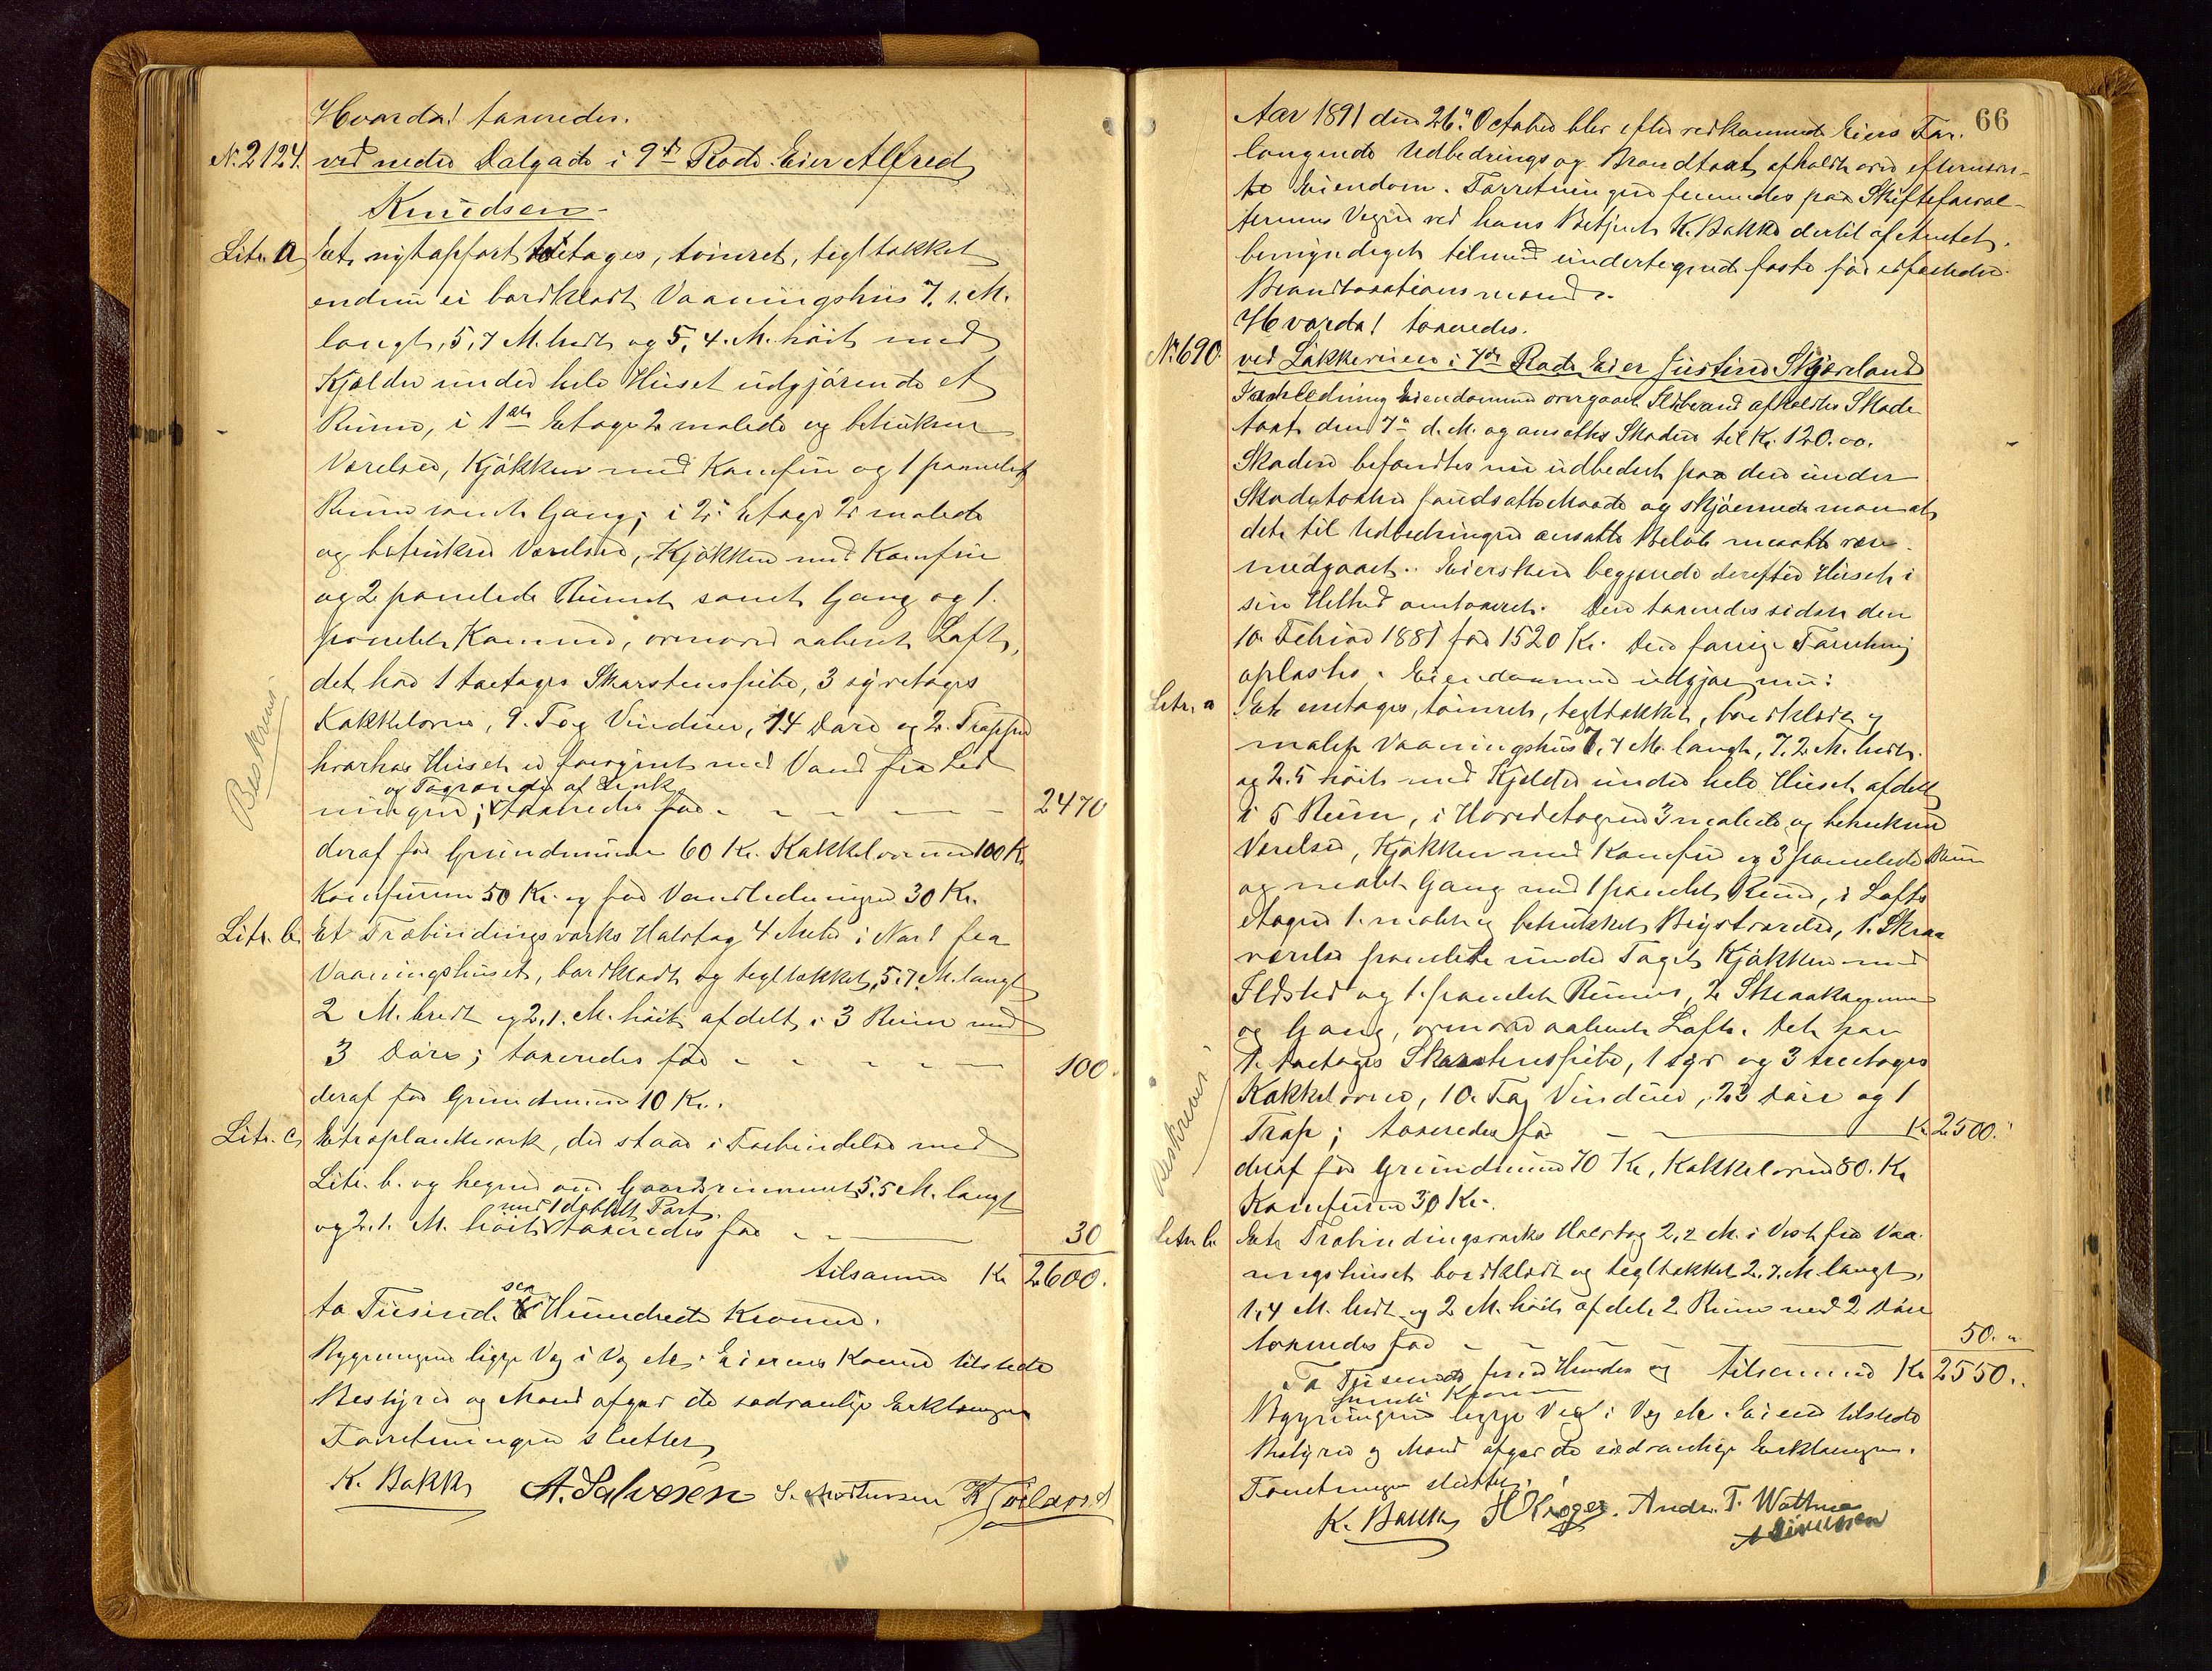 Hvorda! taxeredes.
No. 2124. ved nedre Dalgade i 9de Rode Eier Alfred
Knudsen
Litr. a Et nyt opført toetages, tømret, tegltækket
endnu ei bordklædt Vaaningshus 7.1. M.
langt, 5,7 M. bredt og 5,4. M. høit med
Kjælder under hele Huset udgjørende et
Rum, i 1ste Etage 2 malede og betrukne
Værelser, Kjøkken med Komfur og 1 panelet
Rum samt Gang; i 2. Etage 2 malede
og betrukne Værelser, Kjøkken med Komfur
og 2 panelede Rum samt Gang og 1.
panelet Kammer, ovenover aabent Loft,
det har 1 toetages Skorstenspibe, 3 syvetages
Kakkelovne, 9. Fag Vinduer, 14 Døre og 2. Trapper
hvorhos Huset er forsynet med Vand fra Led
og Tagrender af Zink
ningen; taxeredes for - - - - - 2470
deraf for Grundmuren 60 Kr. Kakkelovnene 100 Kr.
Komfurene 50 Kr. og for Vandledningen 30 Kr.
Litr. b. Et Træbindingsværks Halvtag 4 Meter i Nord fra
Vaaningshuset, bordklædt og tegltækket, 5.7. M. langt
2 M. bredt og 2,1. M. høit afdelt i 3 Rum med
3 Døre; taxeredes for - - - - - 100.
deraf for Grundmuren 10 Kr.
Litr. c, Et træplankeværk, der staar i Forbindelse med
Litr. b. og hegner om Gaardsrummet 5,5 M. langt
med 1 dobbelt Port
og 2.1. M. høit taxeredes for - - 30
tilsammen Kr 2600.
sex
to Tusinde Hundrede Kroner.
Bygningerne ligge Væg i Væg etc. Eierens Kone tilstede
Bestyrer og Mænd afgav de sædvanlige Erklæringer
Forretningen sluttet
K. Bakke A. Salvesen S. Mortensen
Beskreven
66
Aar 1891 den 26" October blev efter vedkommende Eiers For-
langende Udbedrings og Brandtaxt afholdt over efternævn-
te Eiendom. Forretningen fremmedes paa Skifteforval-
terens Vegne ved hans Betjent K. Bakke dertil af Amtet
bemyndiget tilmed undertegnede faste for edfæstede
Brandtaxationsmænd.
Hvorda! taxeredes.
No. 690 ved Løkkeveien i 7de Rode Eier Justine Skjæveland
I Anledning Eiendommen overgaaet Ildbrand afholdtes Skade
taxt den 7de d. M. og ansattes Skaden til Kr. 120.00.
Skaden befandtes nu udbedret paa den under
Skadetaxten forudsatte Maade og skjønnede man at
dets til Udbedringen ansatte Beløb maatte være
medgaaet. Eiersken begjærede derefter Huset i
sin Helhed omtaxeret. Den taxeredes sidst den
10. Februar 1881 for 1520 Kr. Den forrige Forretning
oplæstes. Eiendommen udgjør nu:
Litr. a Et enetages, tømret, tegltækket, bordklædt og
malet Vaaningshus 7,7 M. langt, 7.2 M. bredt
og 2.5 høit med Kjælder under hele Huset afdelt
i 5 Rum, i Hovedetagen 3 malede og betrukne
Værelser, Kjøkken med Komfur og 3 panelede Rum
og malet Gang med 1 panelet Rum, i Lofts
etagen 1. malet og betrukket Kvistværelse, 1. Skraa
værelse panelet under Taget Kjøkken med
Ildsted og 1. panelet Rum, 2 Skraakammere
og Gang, ovenover aabent Loft. Det har
1. toetages Skorstenspibe, 1 syv og 3 treetages
Kakkelovne, 10. Fag Vinduer, 23 Døre og 1
Trap; taxeredes for - - Kr. 2500.
deraf for Grundmuren 70 Kr, Kakkelovnene 80. Kr
Komfuren 30 Kr.
Litr b. Et Træbindingsværks Halvtag 2,2 M. i Vest fra Vaa-
ningshuset bordklædt og tegltækket 2.7. M langt,
1,4 M. bredt og 2 M. høit afdelt 2 Rum med 2 Døre
taxeredes for - - - - 50. "
To Tusende fem Hundrede og tilsammen Kr 2550..
femti Kroner
Bygningerne ligge Væg i Væg etc. Eieren tilstede
Bestyrer og Mænd afgav de sædvanlige Erklæringer.
Forretningen sluttet.
K. Bakke H Krøger. Andr. T. Wattne
Beskreven